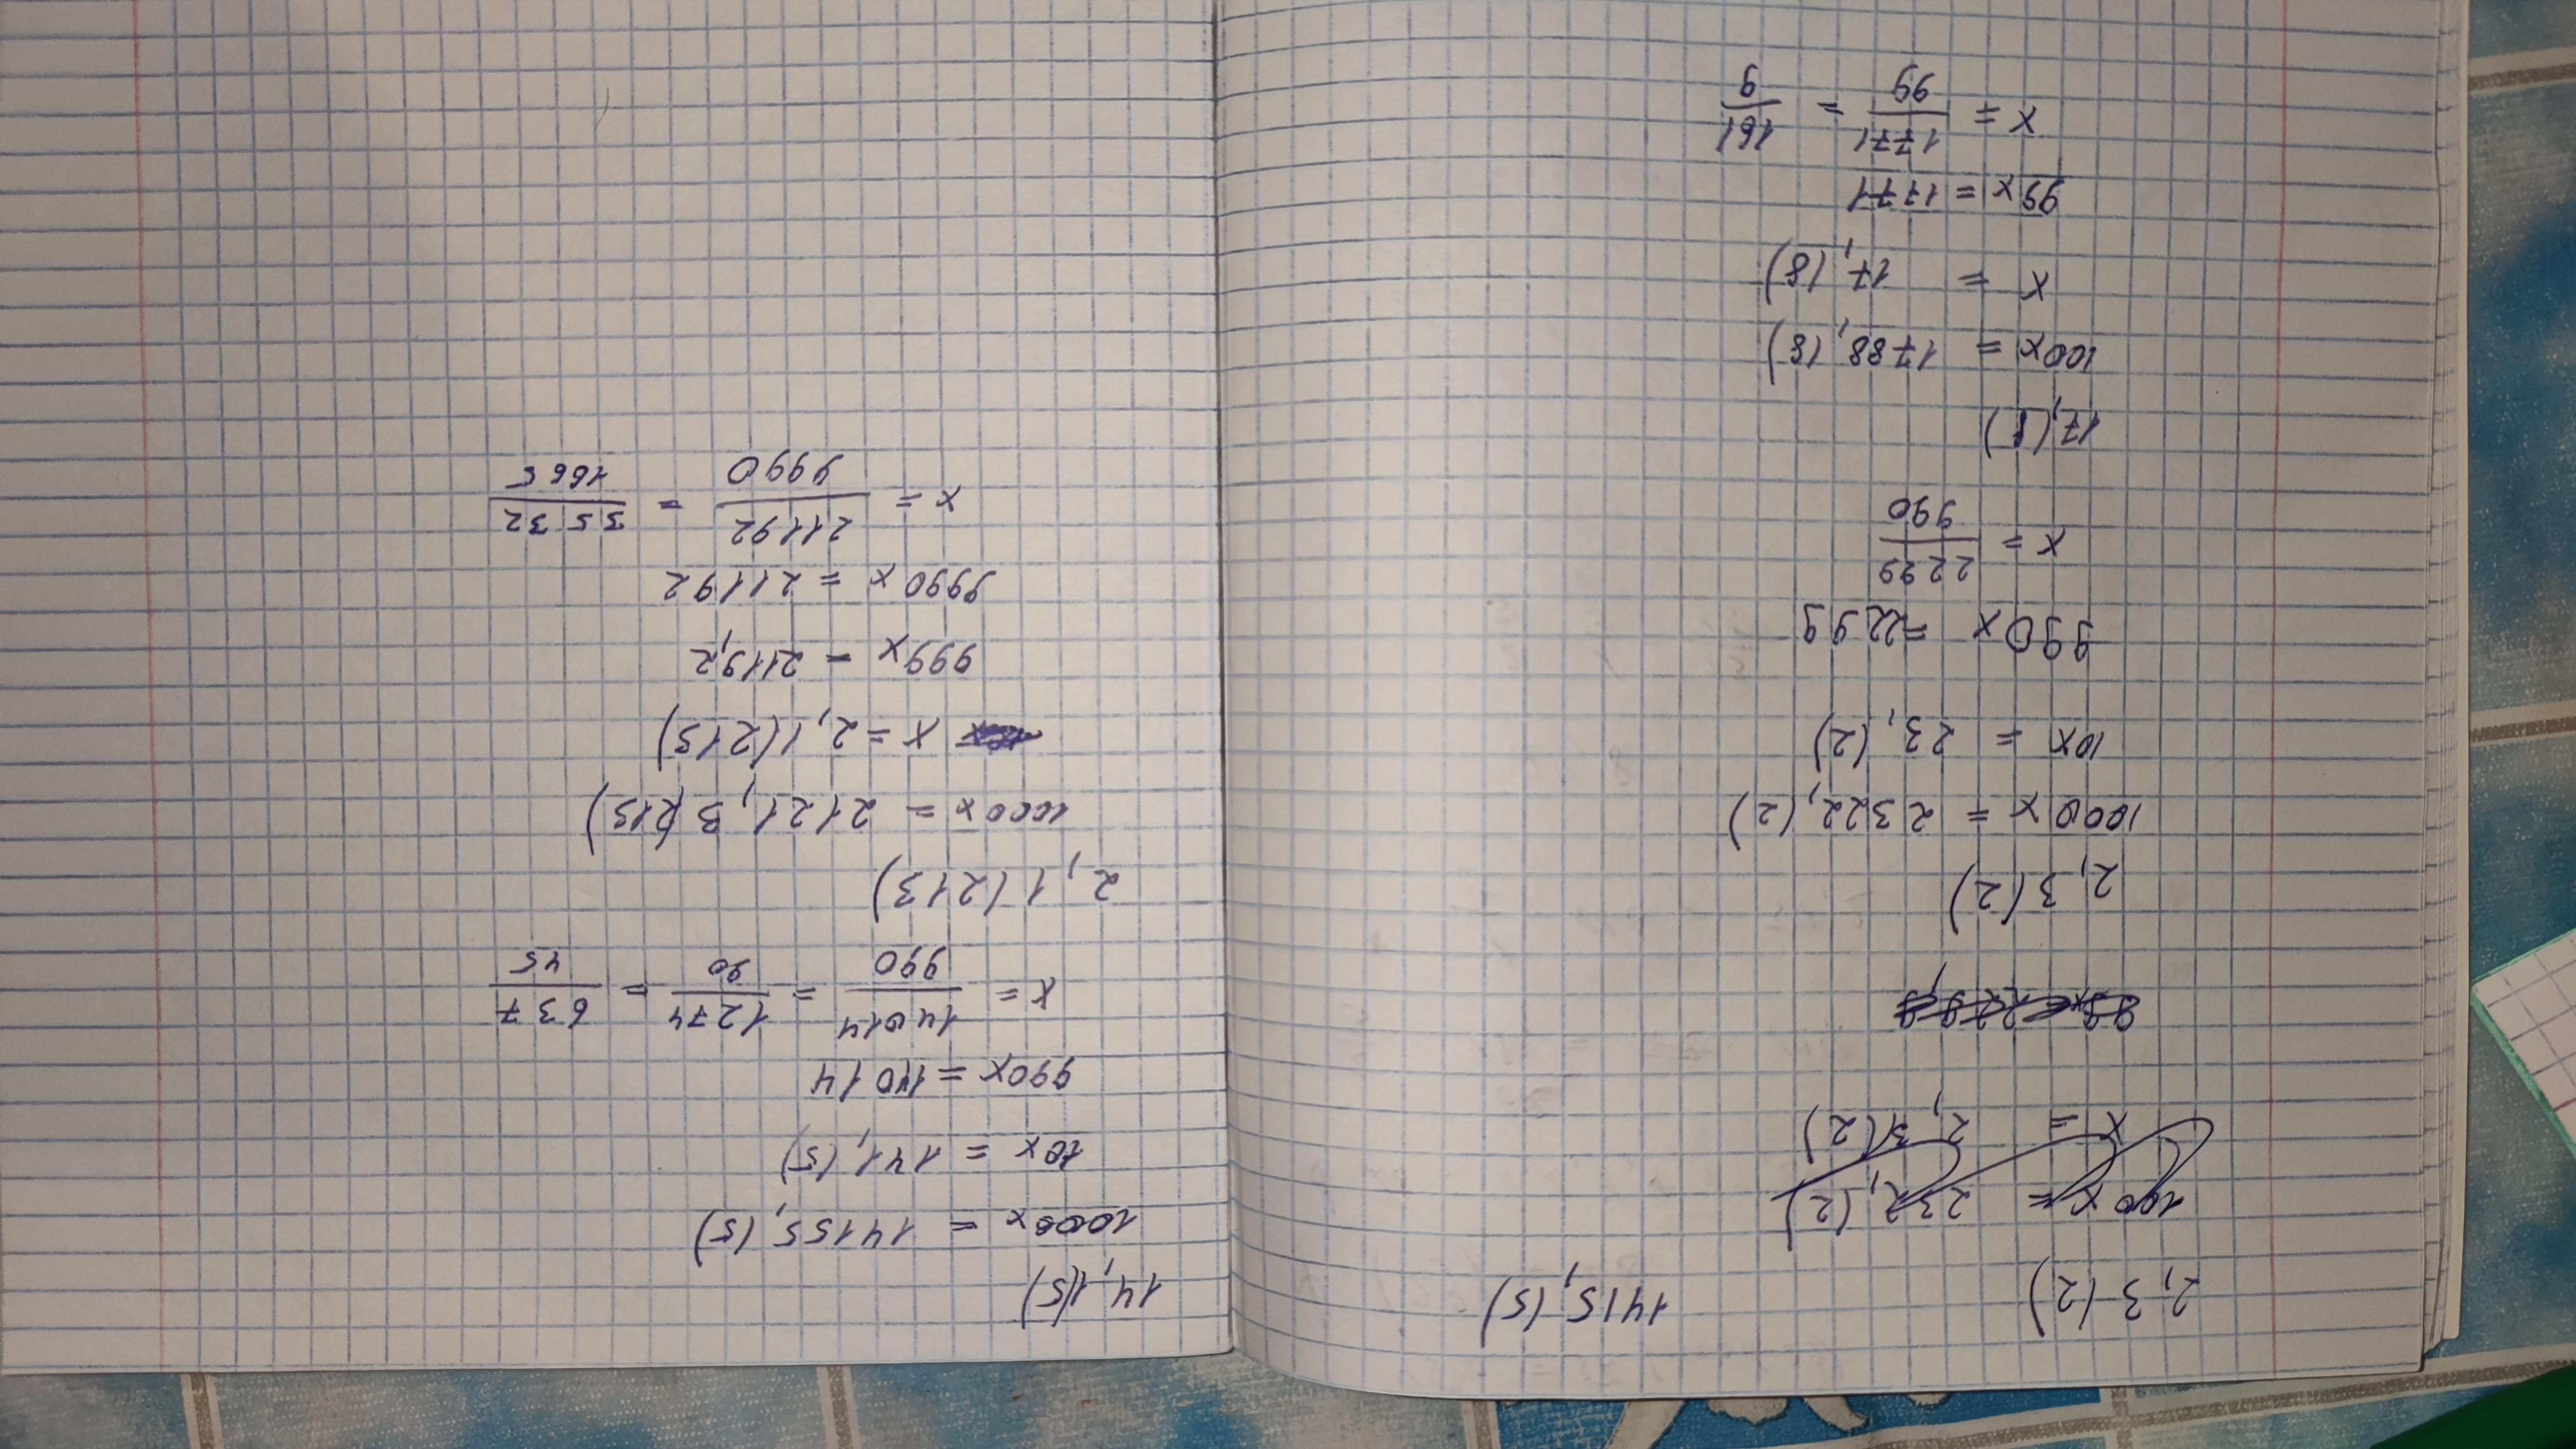 2,3(2)
1415,(5)
100x = 232,(2)
x = 2,3(2)
99x = 229,9
2,3(2)
1000x = 2322,(2)
10x = 23,(2)
990x = 2299
x = 2299/990
17,(8)
100x = 1788,(8)
x = 17,(8)
99x = 1771
x = 1771/99 = 161/9
14,1(5)
1000x = 14155,(5)
10x = 141,(5)
990x = 14014
x = 14014/990 = 1274/90 = 637/45
2,1(213)
1000x = 2121,3(213)
x = 2,1(213)
999x = 2119,2
9990x = 21192
x = 21192/9990 = 3532/1665